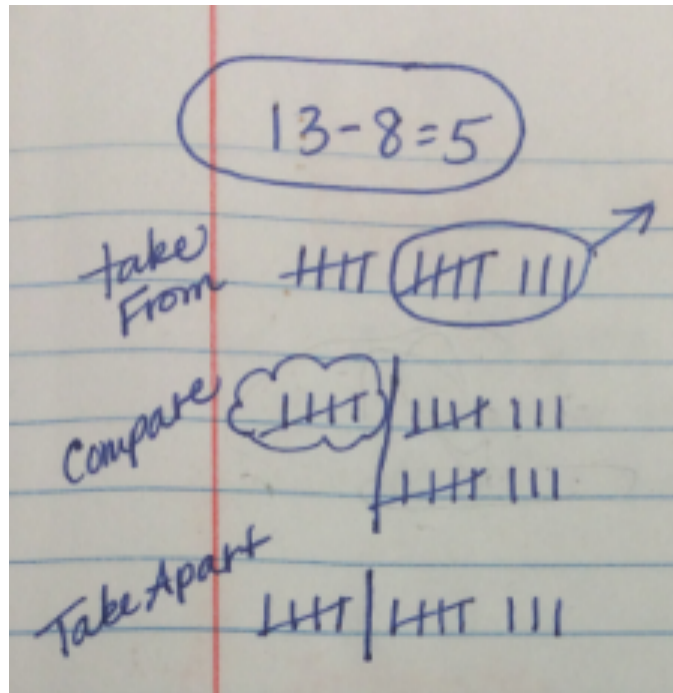 13-8=5
take
From
Compare
Take Apart